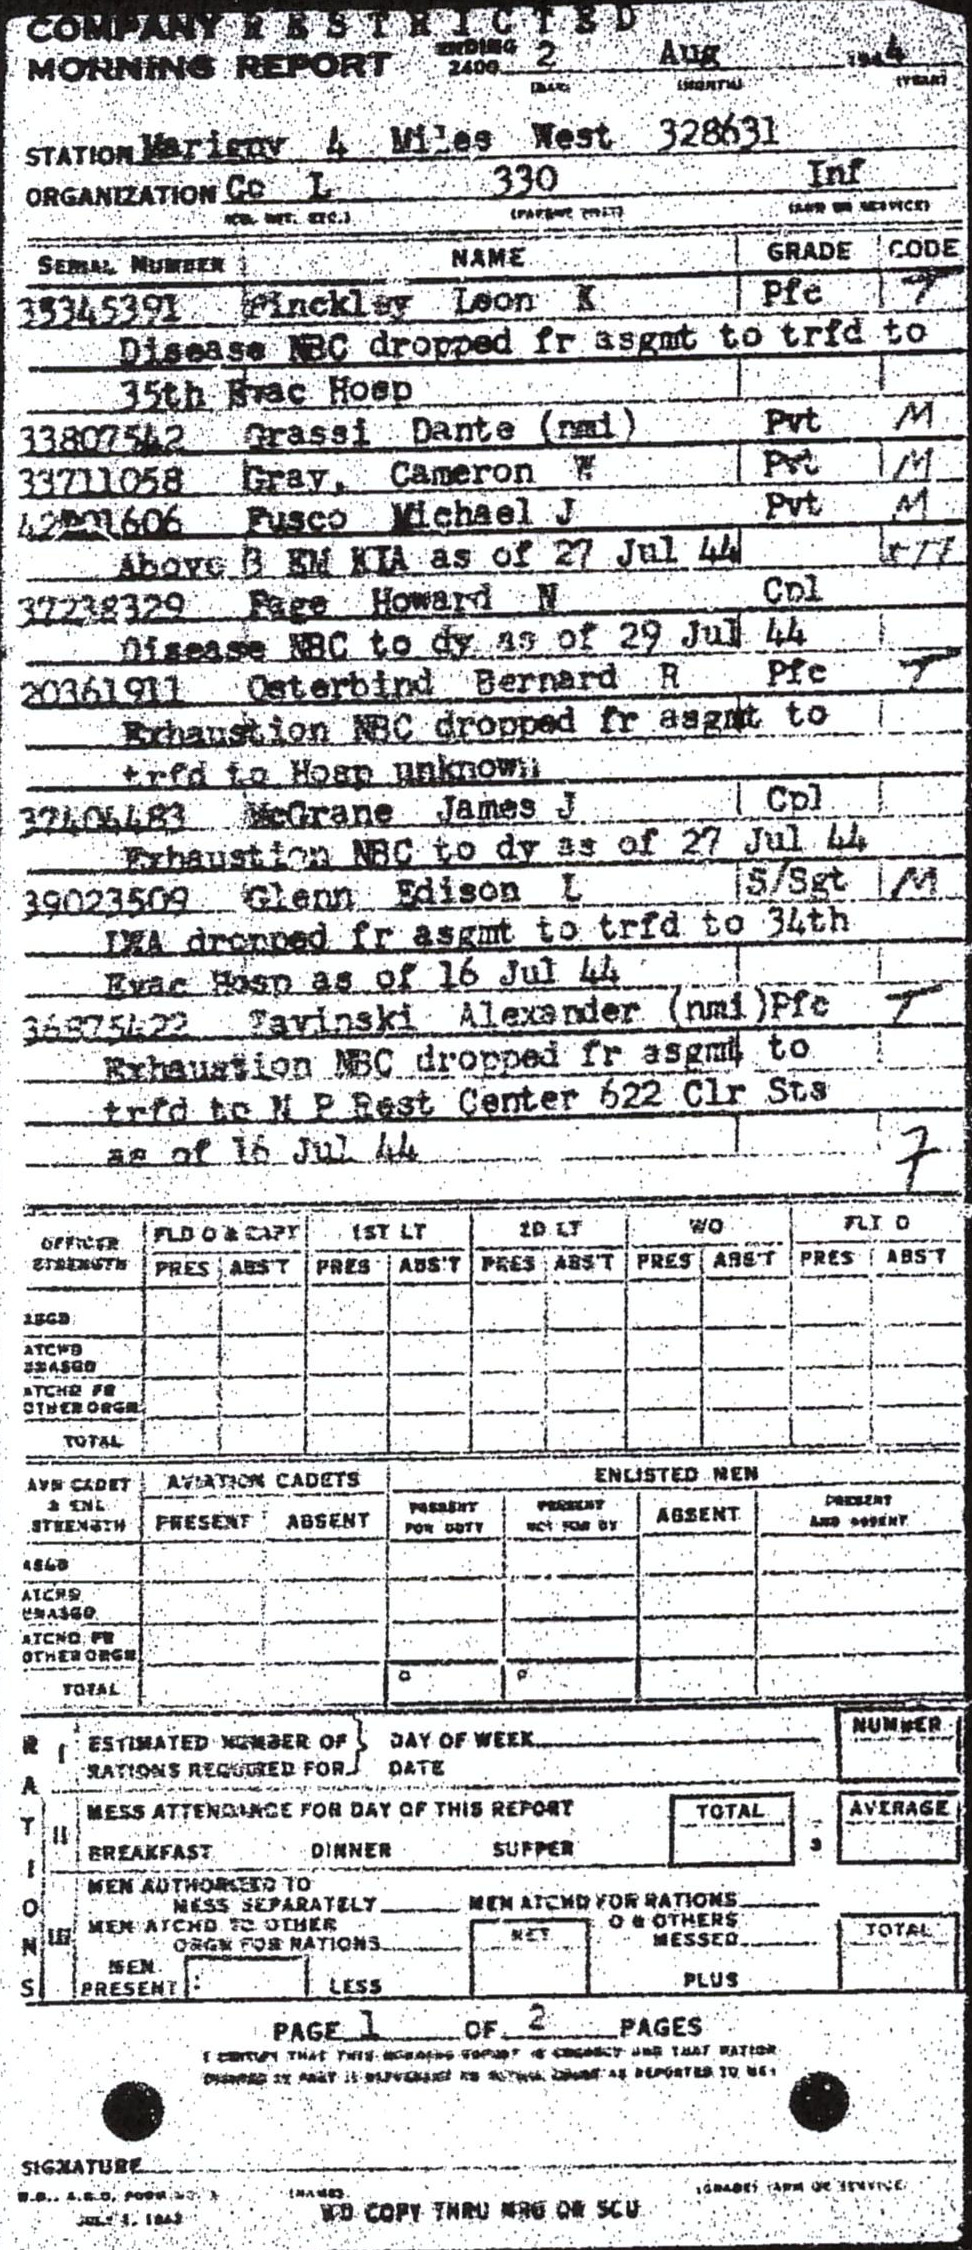 COMPANY RESTRICTED
MORNING REPORT ENDING 2400 2 Aug 1944
(DAY) (MONTH) (YEAR)
STATION Marigny 4 Miles West 328631
ORGANIZATION Co L 330 Inf
(PARENT UNIT) (ARM OR SERVICE)
SERIAL NUMBER NAME GRADE CODE
35345391 Pinckley Leon K Pfc T
Disease NBC dropped fr asgmt to trfd to
35th Evac Hosp
33807542 Grassi Dante (nmi) Pvt M
33711058 Gray, Cameron W Pvt M
Fusco Michael J Pvt M
Above 3 EM KIA as of 27 Jul 44
37238329 Page Howard N Cpl
Disease NBC to dy as of 29 Jul 44
20361911 Osterbind Bernard R Pfc T
Exhaustion NBC dropped fr asgmt to
trfd to Hosp unknown
37404483 McGrane James J Cpl
Exhaustion NBC to dy as of 27 Jul 44
39023509 Glenn Edison L S/Sgt M
dropped fr asgmt to trfd to 34th
Evac Hosp as of 16 Jul 44
36875422 Zavinski Alexander (nmi) Pfc T
Exhaustion NBC dropped fr asgmt to
trfd to N P Rest Center 622 Clr Sta
as of 16 Jul 44
7
OFFICER STRENGTH FLD O & CAPT 1ST LT 2D LT WO FLT O
PRES ABS'T PRES ABS'T PRES ABS'T PRES ABS'T PRES ABS'T
ASGD
ATCHD UNASGD
ATCHD FR OTHER ORGN
TOTAL
AVN CADET & ENL STRENGTH AVIATION CADETS ENLISTED MEN
PRESENT ABSENT PRESENT FOR DUTY PRESENT NOT FOR DY ABSENT PRESENT AND ABSENT
ASGD
ATCHD UNASGD
ATCHD FR OTHER ORGN
TOTAL
RATIONS
I ESTIMATED NUMBER OF } DAY OF WEEK NUMBER
RATIONS REQUIRED FOR DATE
II MESS ATTENDANCE FOR DAY OF THIS REPORT TOTAL AVERAGE
BREAKFAST DINNER SUPPER 3
III MEN AUTHORIZED TO
MESS SEPARATELY MEN ATCHD FOR RATIONS
MEN ATCHD TO OTHER ORGN FOR RATIONS NET O & OTHERS MESSED TOTAL
MEN PRESENT LESS PLUS
PAGE 1 OF 2 PAGES
I CERTIFY THAT THIS MORNING REPORT IS CORRECT AND THAT RATION
SIGNATURE
(NAME) (GRADE) (ARM OR SERVICE)
W.D., A.G.O. FORM NO. 1
JULY 1, 1943
WD COPY THRU MRU OR SCU